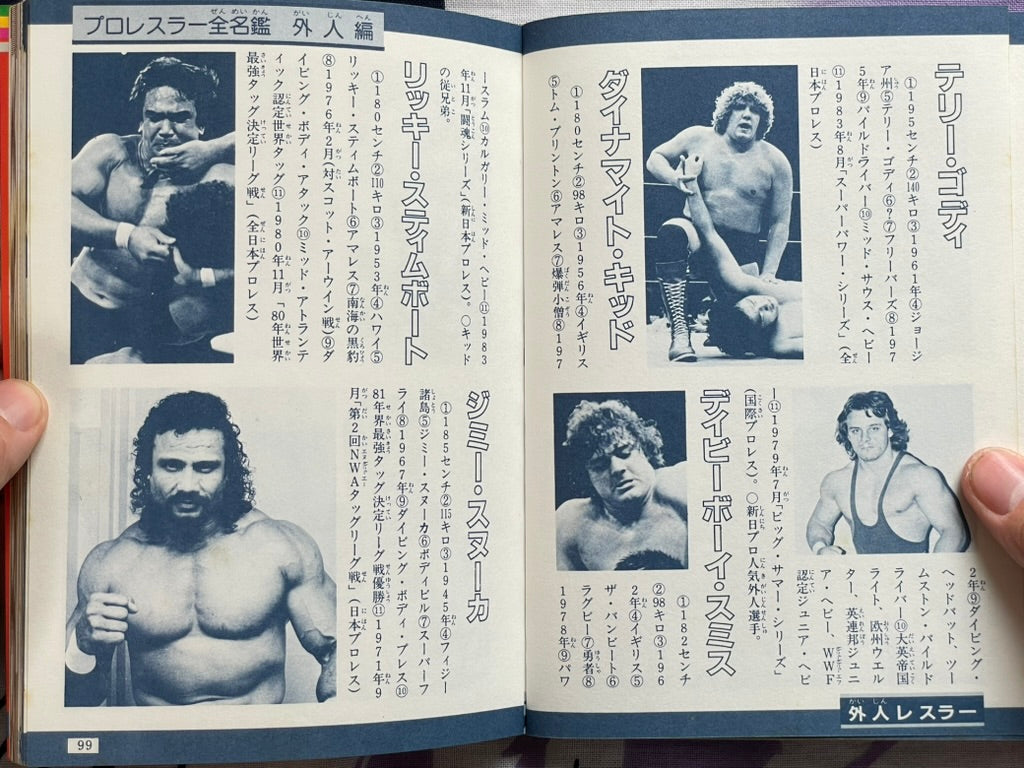 プロレスラー全名鑑 外人編
テリー・ゴディ
①195センチ②140キロ③1961年④ジョージ
ア州⑤テリー・ゴディ⑥?⑦フリーバーズ⑧197
5年⑨パイルドライバー⑩ミッド・サウス・ヘビー
⑪1983年8月「スーパーパワー・シリーズ」(全
日本プロレス)
ダイナマイト・キッド
①180センチ②98キロ③1956年④イギリス
⑤トム・ブリントン⑥アマレス⑦爆弾小僧⑧197
2年⑨ダイビング・
ヘッドバット、ツー
ムストン・パイルド
ライバー⑩大英帝国
ライト、欧州ウエル
ター、英連邦ジュニ
ア・ヘビー、WWF
認定ジュニア・ヘビ
ー⑪1979年7月「ビッグ・サマー・シリーズ」
(国際プロレス)。○新日プロ人気外人選手。
デイビーボーイ・スミス
①182センチ
②98キロ③196
2年④イギリス⑤
ザ・バンビート⑥
ラグビー⑦勇者⑧
1978年⑨パワ
外人レスラー
ースラム⑩カルガリー・ミッド・ヘビー⑪1983
年11月「闘魂シリーズ」(新日本プロレス)。○キッド
の従兄弟。
リッキー・スティムボート
①180センチ②110キロ③1953年④ハワイ⑤
リッキー・スティムボート⑥アマレス⑦南海の黒豹
⑧1976年2月(対スコット・アーウィン戦)⑨ダ
イビング・ボディ・アタック⑩ミッド・アトランテ
ィック認定世界タッグ⑪1980年11月「80年世界
最強タッグ決定リーグ戦」(全日本プロレス)
ジミー・スヌーカ
①185センチ②115キロ③1945年④フィジー
諸島⑤ジミー・スヌーカ⑥ボディビル⑦スーパーフ
ライ⑧1967年⑨ダイビング・ボディ・プレス⑩
81年世界最強タッグ決定リーグ戦優勝⑪1971年9
月「第2回NWAタッグリーグ戦」(日本プロレス)
99